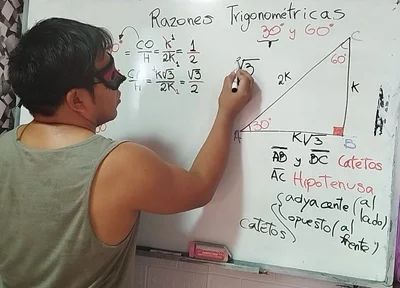 Razones Trigonométricas
30° y 60°
30° = CO/H = k/2k = 1/2
C/H = k√3/2k = √3/2
√3
2k
C
60°
k
A
30°
k√3
B
AB y BC Catetos
AC Hipotenusa
Catetos { adyacente (al lado)
opuesto (al frente)